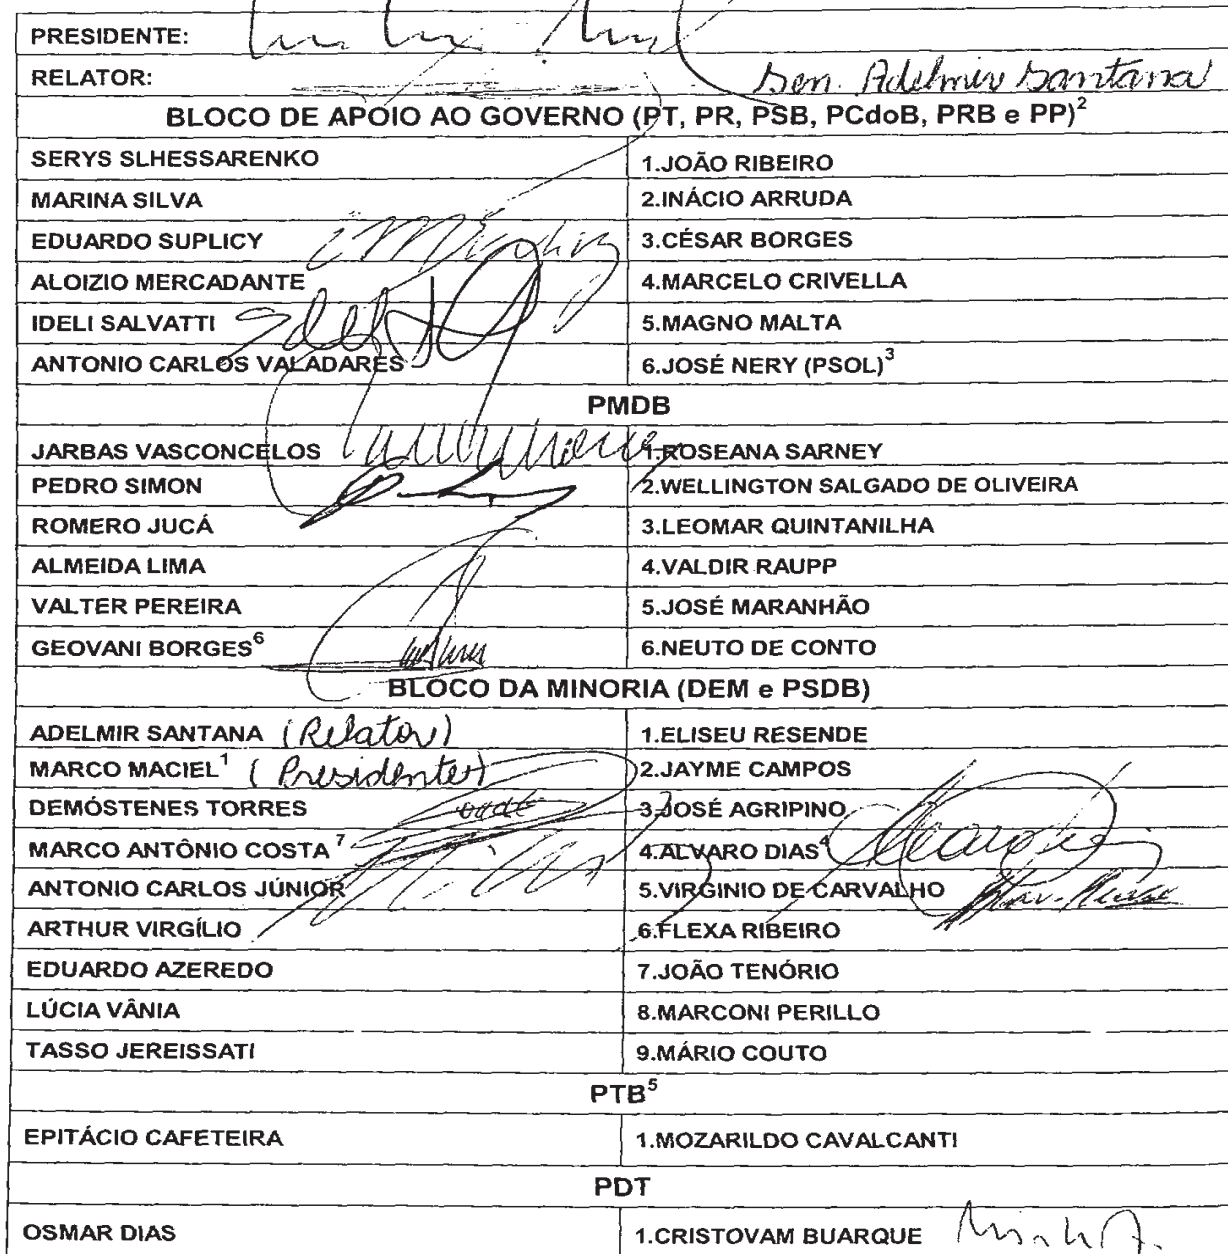 PRESIDENTE:
RELATOR: Sen. Adelmir Santana
BLOCO DE APOIO AO GOVERNO (PT, PR, PSB, PCdoB, PRB e PP)²
SERYS SLHESSARENKO 1.JOÃO RIBEIRO
MARINA SILVA 2.INÁCIO ARRUDA
EDUARDO SUPLICY 3.CÉSAR BORGES
ALOIZIO MERCADANTE 4.MARCELO CRIVELLA
IDELI SALVATTI 5.MAGNO MALTA
ANTONIO CARLOS VALADARES 6.JOSÉ NERY (PSOL)³
PMDB
JARBAS VASCONCELOS 1.ROSEANA SARNEY
PEDRO SIMON 2.WELLINGTON SALGADO DE OLIVEIRA
ROMERO JUCÁ 3.LEOMAR QUINTANILHA
ALMEIDA LIMA 4.VALDIR RAUPP
VALTER PEREIRA 5.JOSÉ MARANHÃO
GEOVANI BORGES⁶ 6.NEUTO DE CONTO
BLOCO DA MINORIA (DEM e PSDB)
ADELMIR SANTANA (Relator) 1.ELISEU RESENDE
MARCO MACIEL¹ (Presidente) 2.JAYME CAMPOS
DEMÓSTENES TORRES 3.JOSÉ AGRIPINO
MARCO ANTÔNIO COSTA⁷ 4.ALVARO DIAS⁴
ANTONIO CARLOS JÚNIOR 5.VIRGINIO DE CARVALHO
ARTHUR VIRGÍLIO 6.FLEXA RIBEIRO
EDUARDO AZEREDO 7.JOÃO TENÓRIO
LÚCIA VÂNIA 8.MARCONI PERILLO
TASSO JEREISSATI 9.MÁRIO COUTO
PTB⁵
EPITÁCIO CAFETEIRA 1.MOZARILDO CAVALCANTI
PDT
OSMAR DIAS 1.CRISTOVAM BUARQUE